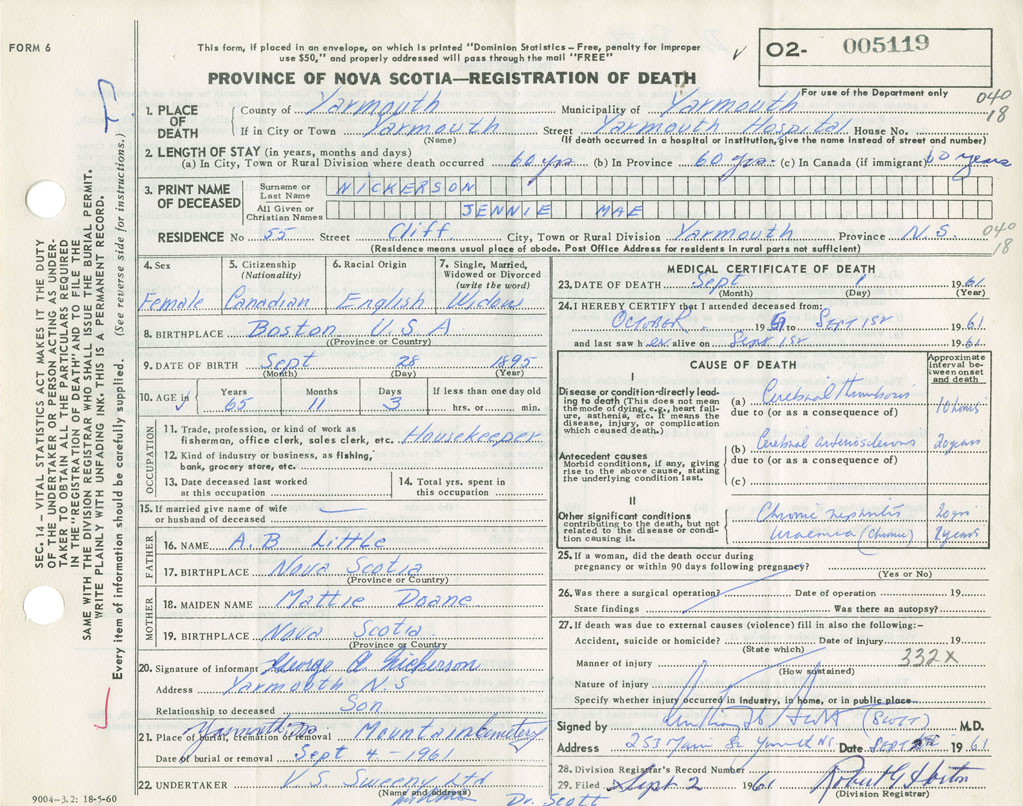 FORM 6
This form, if placed in an envelope, on which is printed "Dominion Statistics – Free, penalty for improper
use $50," and properly addressed will pass through the mail "FREE"
✓ 02- 005119
PROVINCE OF NOVA SCOTIA—REGISTRATION OF DEATH
For use of the Department only
040
18
1. PLACE OF DEATH
County of Yarmouth Municipality of Yarmouth
If in City or Town Yarmouth Street Yarmouth Hospital House No.
(Name) (If death occurred in a hospital or institution, give the name instead of street and number)
2. LENGTH OF STAY (in years, months and days)
(a) In City, Town or Rural Division where death occurred 60 yrs. (b) In Province 60 yrs. (c) In Canada (if immigrant) 60 years
3. PRINT NAME OF DECEASED
Surname or Last Name NICKERSON
All Given or Christian Names JENNIE MAE
RESIDENCE No 55 Street Cliff City, Town or Rural Division Yarmouth Province N.S. 040
18
(Residence means usual place of abode. Post Office Address for residents in rural parts not sufficient)
4. Sex
Female
5. Citizenship (Nationality)
Canadian
6. Racial Origin
English
7. Single, Married, Widowed or Divorced (write the word)
Widow
8. BIRTHPLACE Boston U.S.A
(Province or Country)
9. DATE OF BIRTH Sept 28 1895
(Month) (Day) (Year)
10. AGE in ✓ Years Months Days If less than one day old
65 11 3 hrs. or min.
OCCUPATION
11. Trade, profession, or kind of work as
fisherman, office clerk, sales clerk, etc. Housekeeper
12. Kind of industry or business, as fishing,
bank, grocery store, etc.
13. Date deceased last worked
at this occupation
14. Total yrs. spent in
this occupation
15. If married give name of wife
or husband of deceased —
FATHER
16. NAME A.B. Little
17. BIRTHPLACE Nova Scotia
(Province or Country)
MOTHER
18. MAIDEN NAME Mattie Doane
19. BIRTHPLACE Nova Scotia
(Province or Country)
20. Signature of informant George A Nickerson
Address Yarmouth N.S
Relationship to deceased Son
21. Place of burial, cremation or removal Yarmouth, Mountain Cemetery
Date of burial or removal Sept 4 - 1961
22. UNDERTAKER V.S. Sweeny Ltd
(Name and address)
Dr. Scott
9004–3.2: 18-5-60
MEDICAL CERTIFICATE OF DEATH
23. DATE OF DEATH Sept 1 1961
(Month) (Day) (Year)
24. I HEREBY CERTIFY that I attended deceased from:
OCTOBER 19 to SEPT 1ST 1961
and last saw her alive on Sept 1ST 1961
CAUSE OF DEATH
Approximate interval between onset and death
I
Disease or condition directly leading to death (This does not mean the mode of dying, e.g., heart failure, asthenia, etc. It means the disease, injury, or complication which caused death.)
(a) Cerebral thrombosis 10 hours
due to (or as a consequence of)
Antecedent causes
Morbid conditions, if any, giving rise to the above cause, stating the underlying condition last.
(b) Cerebral arteriosclerosis 20 years
due to (or as a consequence of)
(c)
II
Other significant conditions
contributing to the death, but not related to the disease or condition causing it.
Chronic nephritis 20 yrs
Uraemia (Chronic) 2 years
25. If a woman, did the death occur during
pregnancy or within 90 days following pregnancy?
(Yes or No)
26. Was there a surgical operation? Date of operation 19
State findings Was there an autopsy?
27. If death was due to external causes (violence) fill in also the following:–
Accident, suicide or homicide? Date of injury 19
(State which)
Manner of injury 332X
(How sustained)
Nature of injury
Specify whether injury occurred in industry, in home, or in public place
Signed by (SCOTT) M.D.
Address 253 Main St NS Date SEPT 1961
28. Division Registrar's Record Number
29. Filed Sept 2 1961 Robert G Horton
(Division Registrar)
SEC. 14 – VITAL STATISTICS ACT MAKES IT THE DUTY
OF THE UNDERTAKER OR PERSON ACTING AS UNDER-
TAKER TO OBTAIN ALL THE PARTICULARS REQUIRED
IN THE "REGISTRATION OF DEATH" AND TO FILE THE
SAME WITH THE DIVISION REGISTRAR WHO SHALL ISSUE THE BURIAL PERMIT.
WRITE PLAINLY WITH UNFADING INK. THIS IS A PERMANENT RECORD.
Every item of information should be carefully supplied. (See reverse side for instructions.)